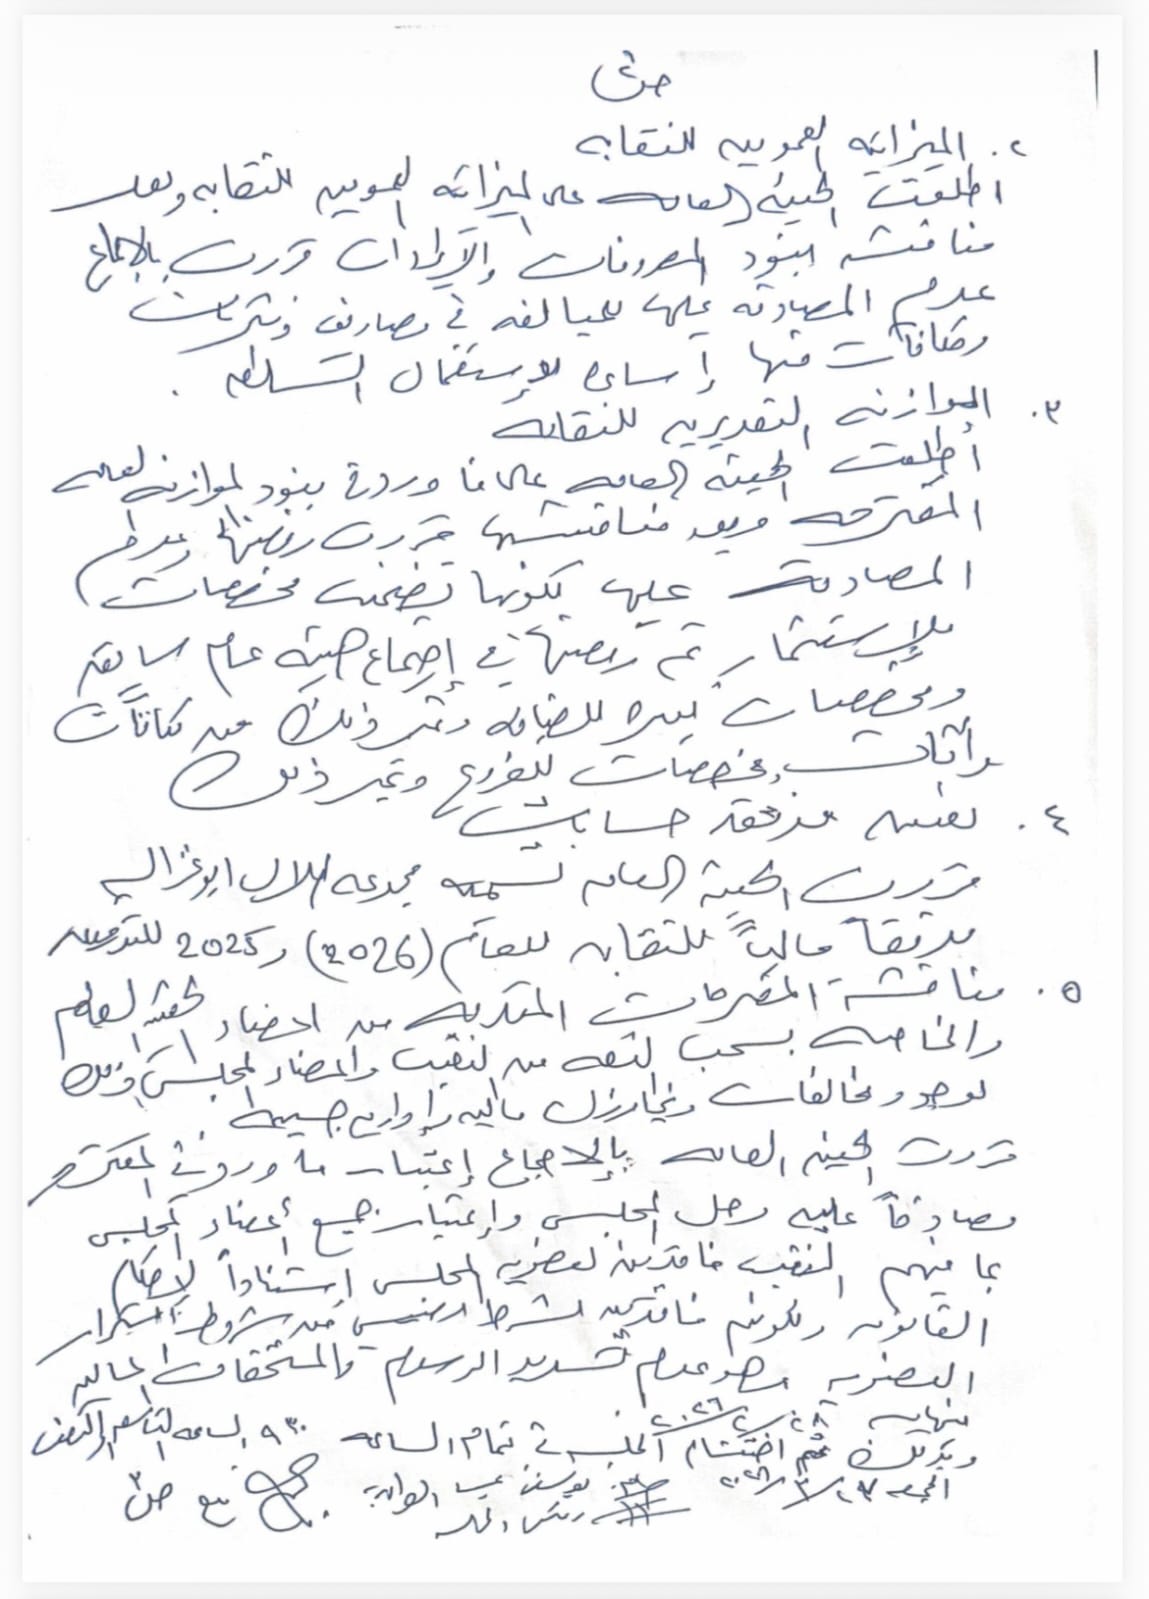 ص٢
٢. الميزانيه العموميه للنقابه
اطلعت الهيئه العامه على الميزانيه العموميه للنقابه وبعد
مناقشه البنود المصروفات والإيرادات قررت بالإجماع
عدم المصادقه عليها للمخالفه في مصاريف ونثريات
ومكافآت منها إساءه لإستعمال السلطه .
٣. الموازنه التقديريه للنقابه
أطلعت الهيئه العامه على ما ورد في بنود الموازنه العامه
المقترحه وبعد مناقشتها قررت رفضها وعدم
المصادقه عليها لكونها تضمنت مخصصات
للإستثمار تم رفضها في إجتماع هيئه عامه سابقه
ومخصصات كبيره للضيافه وغير ذلك من مكافآت
وأثاث ومخصصات للفروع وغير ذلك
٤. تعيين مدقق حسابات
قررت الهيئه العامه تسميه مجموعه طلال ابوغزاله
مدققاً مالياً للنقابه للعام (2026) و 2025 للترميم
٥. مناقشة المقترحات المقدمه من اعضاء الهيئه العامه
والخاصه بسحب الثقه من النقيب واعضاء المجلس وذلك
لوجود مخالفات وتجاوزات ماليه وإداريه جسيمه
قررت الهيئه العامه بالإجماع إعتبار ما ورد في المقترح
مصادقاً عليه وحل المجلس وإعتبار جميع أعضاء المجلس
بما فيهم النقيب فاقدين لعضويه المجلس إستناداً لأحكام
القانون ولكونهم فاقدين لشرط اساسي من شروط استمرار
العضويه وهو عدم تسديد الرسوم والمستحقات الماليه
بنهايه ٢٨/٢/٢٠٢٦
وبذلك تم اختتام الجلسه في تمام الساعه ٩٣٠ الساعه التاسعه والنصف
الجمعه ٢٠٢٦/٣/٢٧ رئيس الجلسه يتبع ص٣